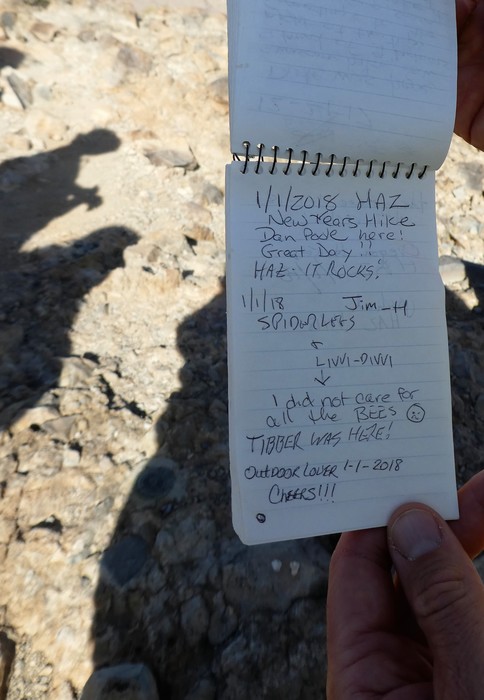 1/1/2018 HAZ
New Years Hike
Dan Poole here!
Great Day!!
HAZ - IT ROCKS!
1/1/18 Jim_H
SPIDERLEGS
LIVVI-DIVVI
I did not care for
all the BEES
TIBBER WAS HERE!
OUTDOOR LOVER 1-1-2018
CHEERS!!!